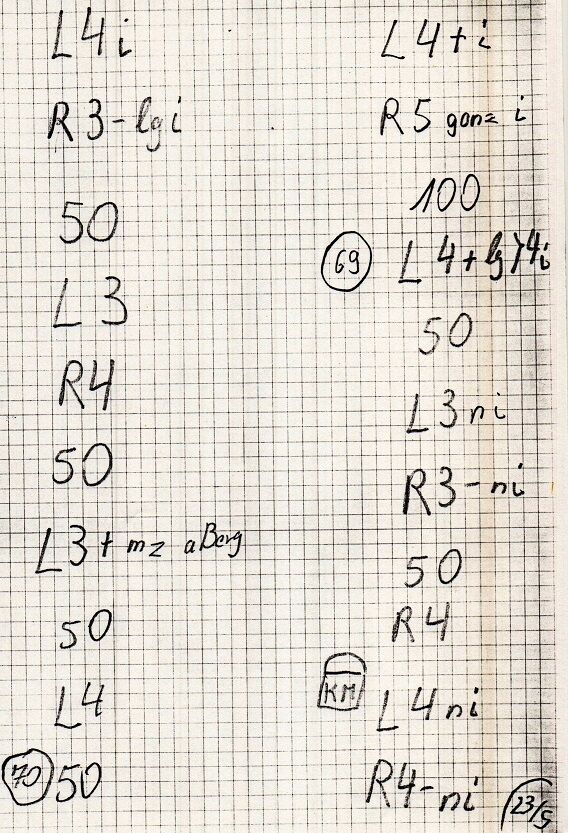 L4i
R3-lgi
50
L3
R4
50
L3+ mz aBerg
50
L4
70 50
L4+i
R5 ganz i
100
69 L4+lg>4i
50
L3ni
R3-ni
50
R4
KM
L4ni
R4-ni
23/5